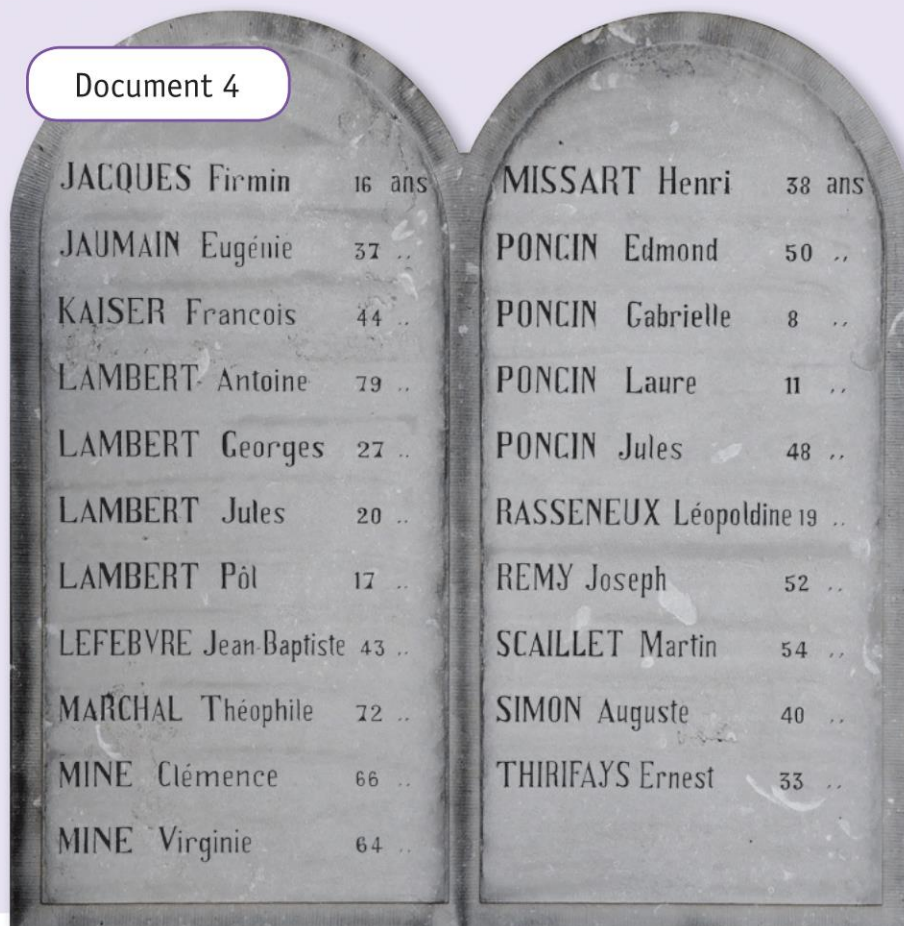 Document 4
JACQUES Firmin 16 ans
JAUMAIN Eugénie 37 ..
KAISER Francois 44 ..
LAMBERT Antoine 79 ..
LAMBERT Georges 27 ..
LAMBERT Jules 20 ..
LAMBERT Pôl 17 ..
LEFEBVRE Jean-Baptiste 43 ..
MARCHAL Théophile 72 ..
MINE Clémence 66 ..
MINE Virginie 64 ..
MISSART Henri 38 ans
PONCIN Edmond 50 ..
PONCIN Gabrielle 8 ..
PONCIN Laure 11 ..
PONCIN Jules 48 ..
RASSENEUX Léopoldine 19 ..
REMY Joseph 52 ..
SCAILLET Martin 54 ..
SIMON Auguste 40 ..
THIRIFAYS Ernest 33 ..